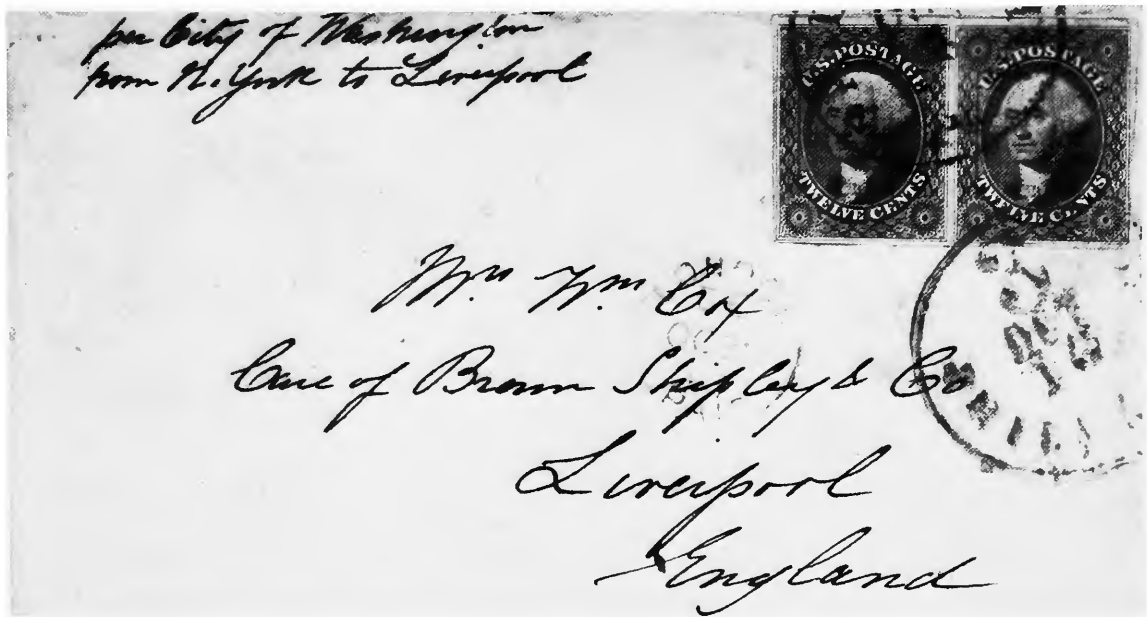 per City of Washington
from N. York to Liverpool
U.S. POSTAGE
TWELVE CENTS
U.S. POSTAGE
TWELVE CENTS
Mrs Wm Cox
Care of Brown Shipley & Co
Liverpool
England